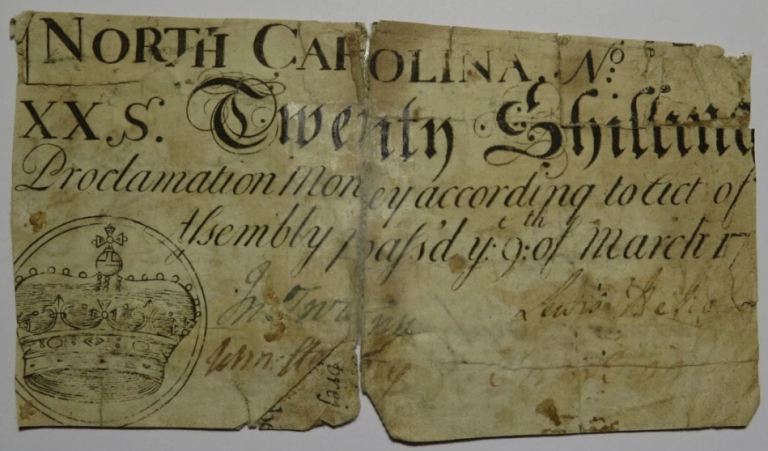 NORTH CAROLINA. No.
XX.S. Twenty Shilling
Proclamation Money according to Act of
Assembly pass'd ye. 9th: of March 17
Lewis